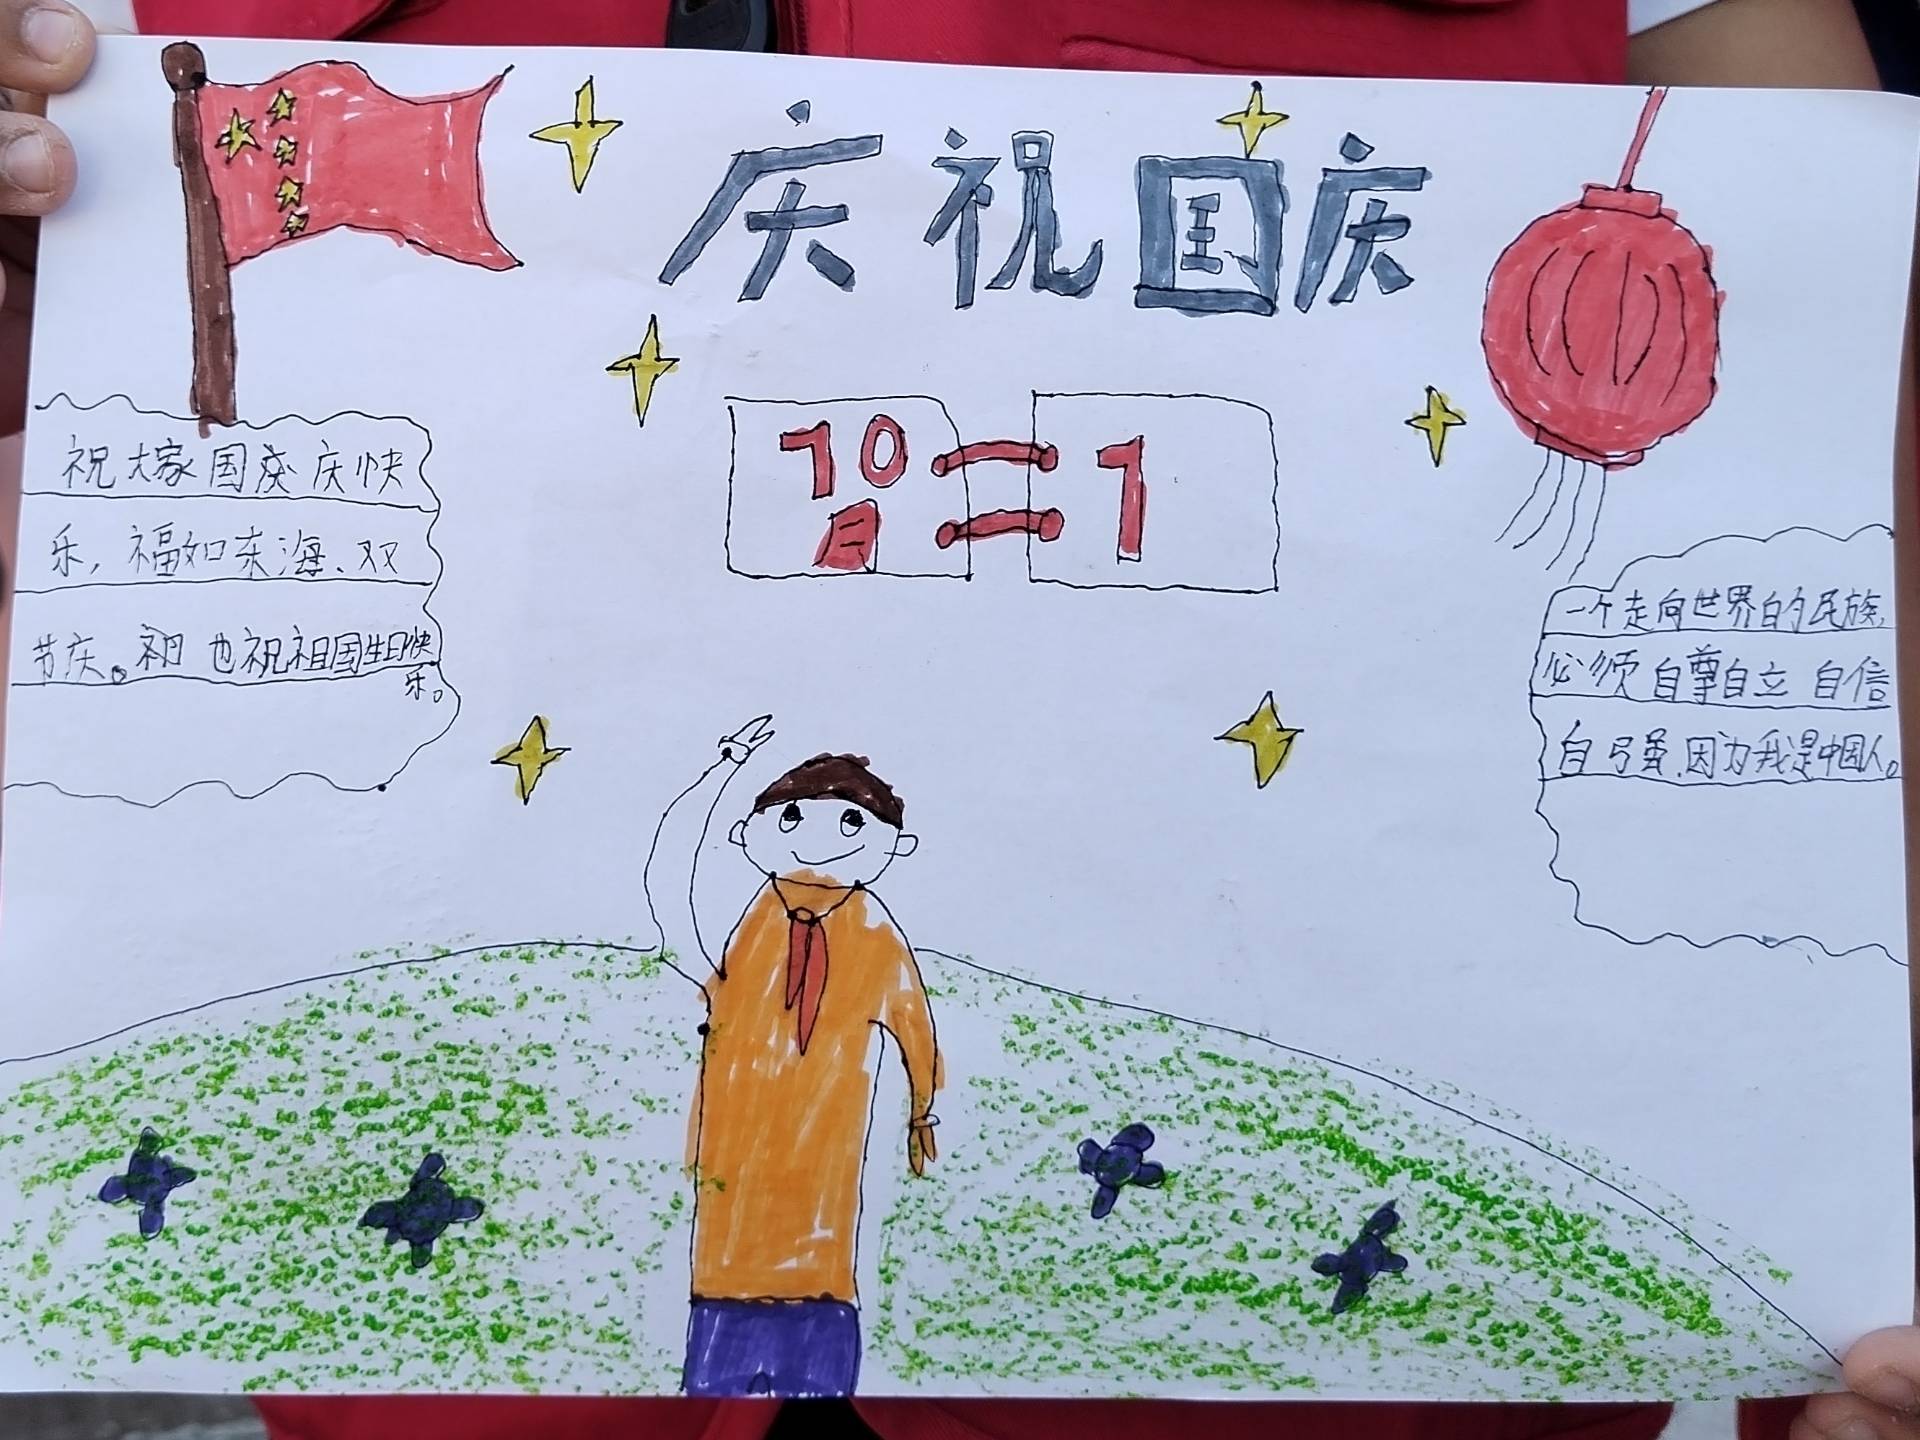 庆祝国庆
10
月
1
祝大家国庆庆快
乐，福如东海、双
节庆。祝也祝祖国生日快
乐。
一个走向世界的民族，
必须自尊自立自信
自强.因为我是中国人。